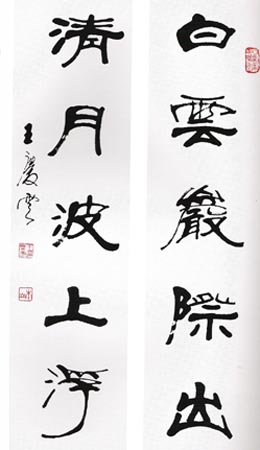 白雲巖際出
清月波上浮
王慶